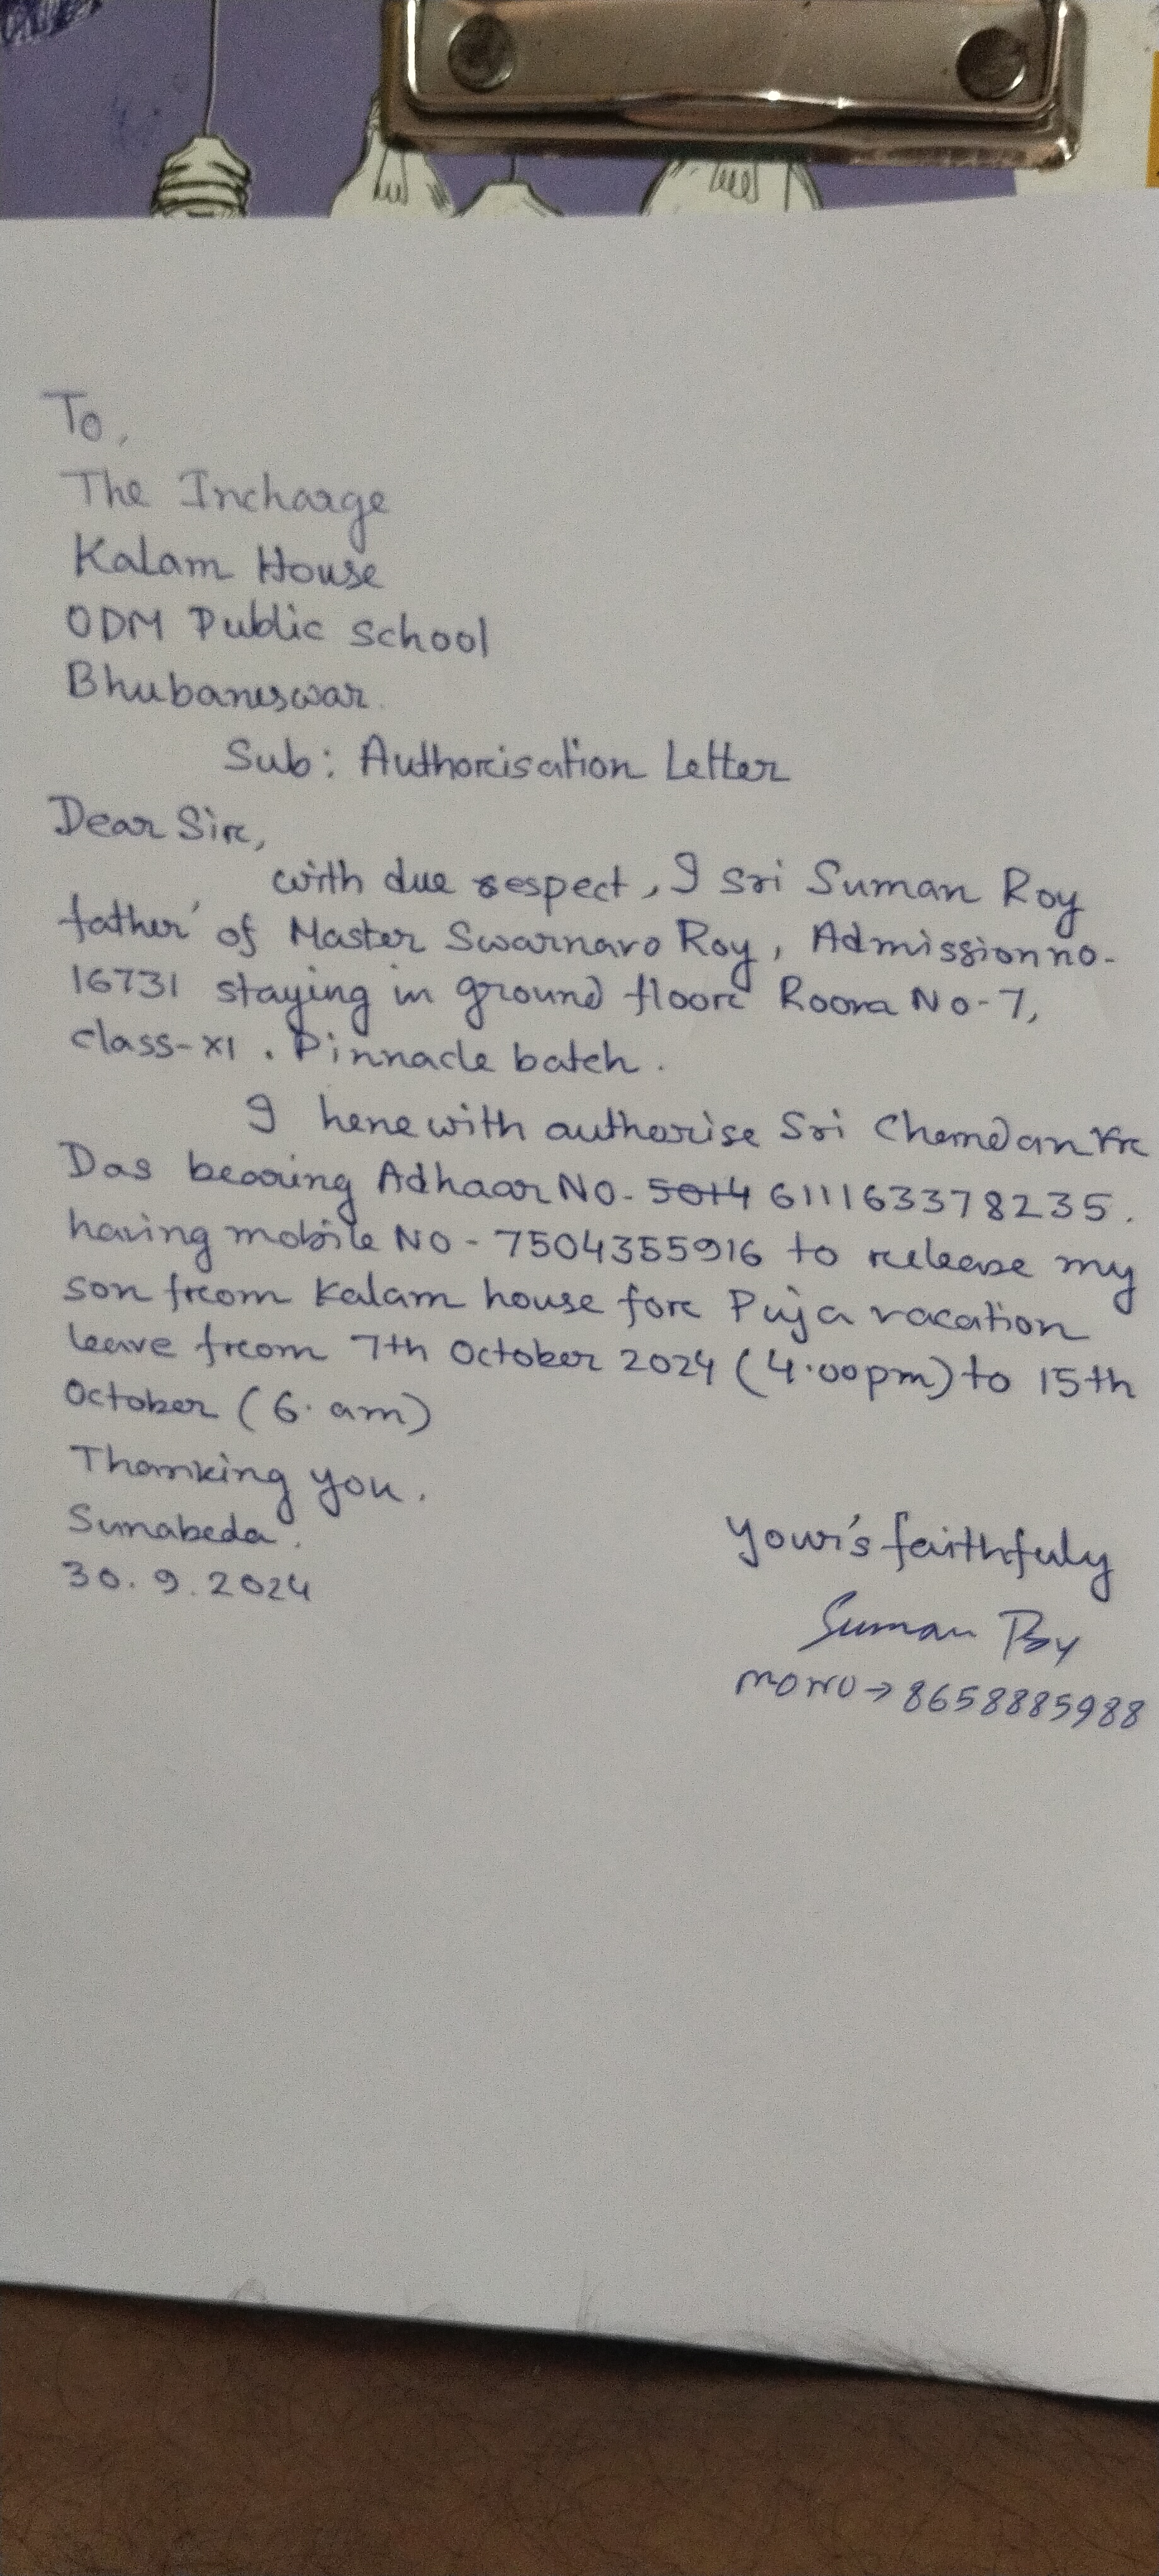 To,
The Incharge
Kalam House
ODM Public School
Bhubaneswar.
Sub: Authorisation Letter
Dear Sir,
with due respect, I Sri Suman Roy
father of Master Swarnavo Roy, Admission no-
16731 staying in ground floor Room No-7,
class-XI. Pinnacle batch.
I herewith authorise Sri Chandan Kr
Das bearing Adhaar NO- 5014 611163378235.
having mobile NO - 7504355916 to release my
son from Kalam house for Puja vacation
leave from 7th October 2024 (4.00pm) to 15th
October (6. am)
Thanking you.
Sunabeda.
30.9.2024
Your's faithfuly
Suman Roy
MONO → 8658885988